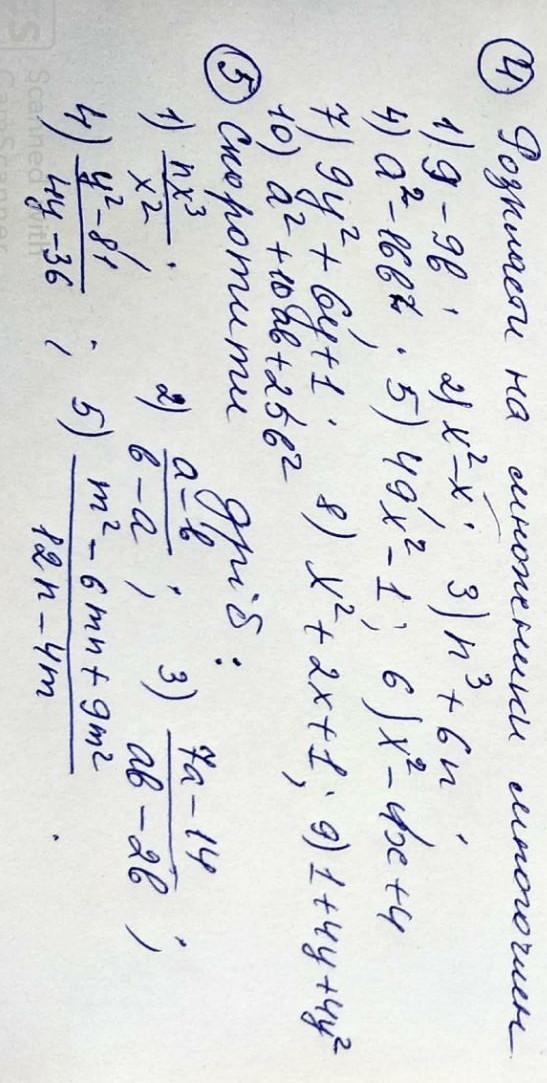 ④ Розкласти на множники многочлен
1) 9 - 9b; 2) x² - x; 3) n³ + 6n;
4) a² - 16b²; 5) 49x² - 1; 6) x² - 4x + 4
7) 9y² + 6y + 1; 8) x² + 2x + 1; 9) 1 + 4y + 4y²
10) a² + 10ab + 25b²
⑤ Скоротити дріб:
1) nx³/x²; 2) a - b/b - a; 3) 7a - 14/ab - 2b;
4) y² - 81/4y - 36; 5) m² - 6mn + 9m²/12n - 4m.
Scanned with
CS CamScanner